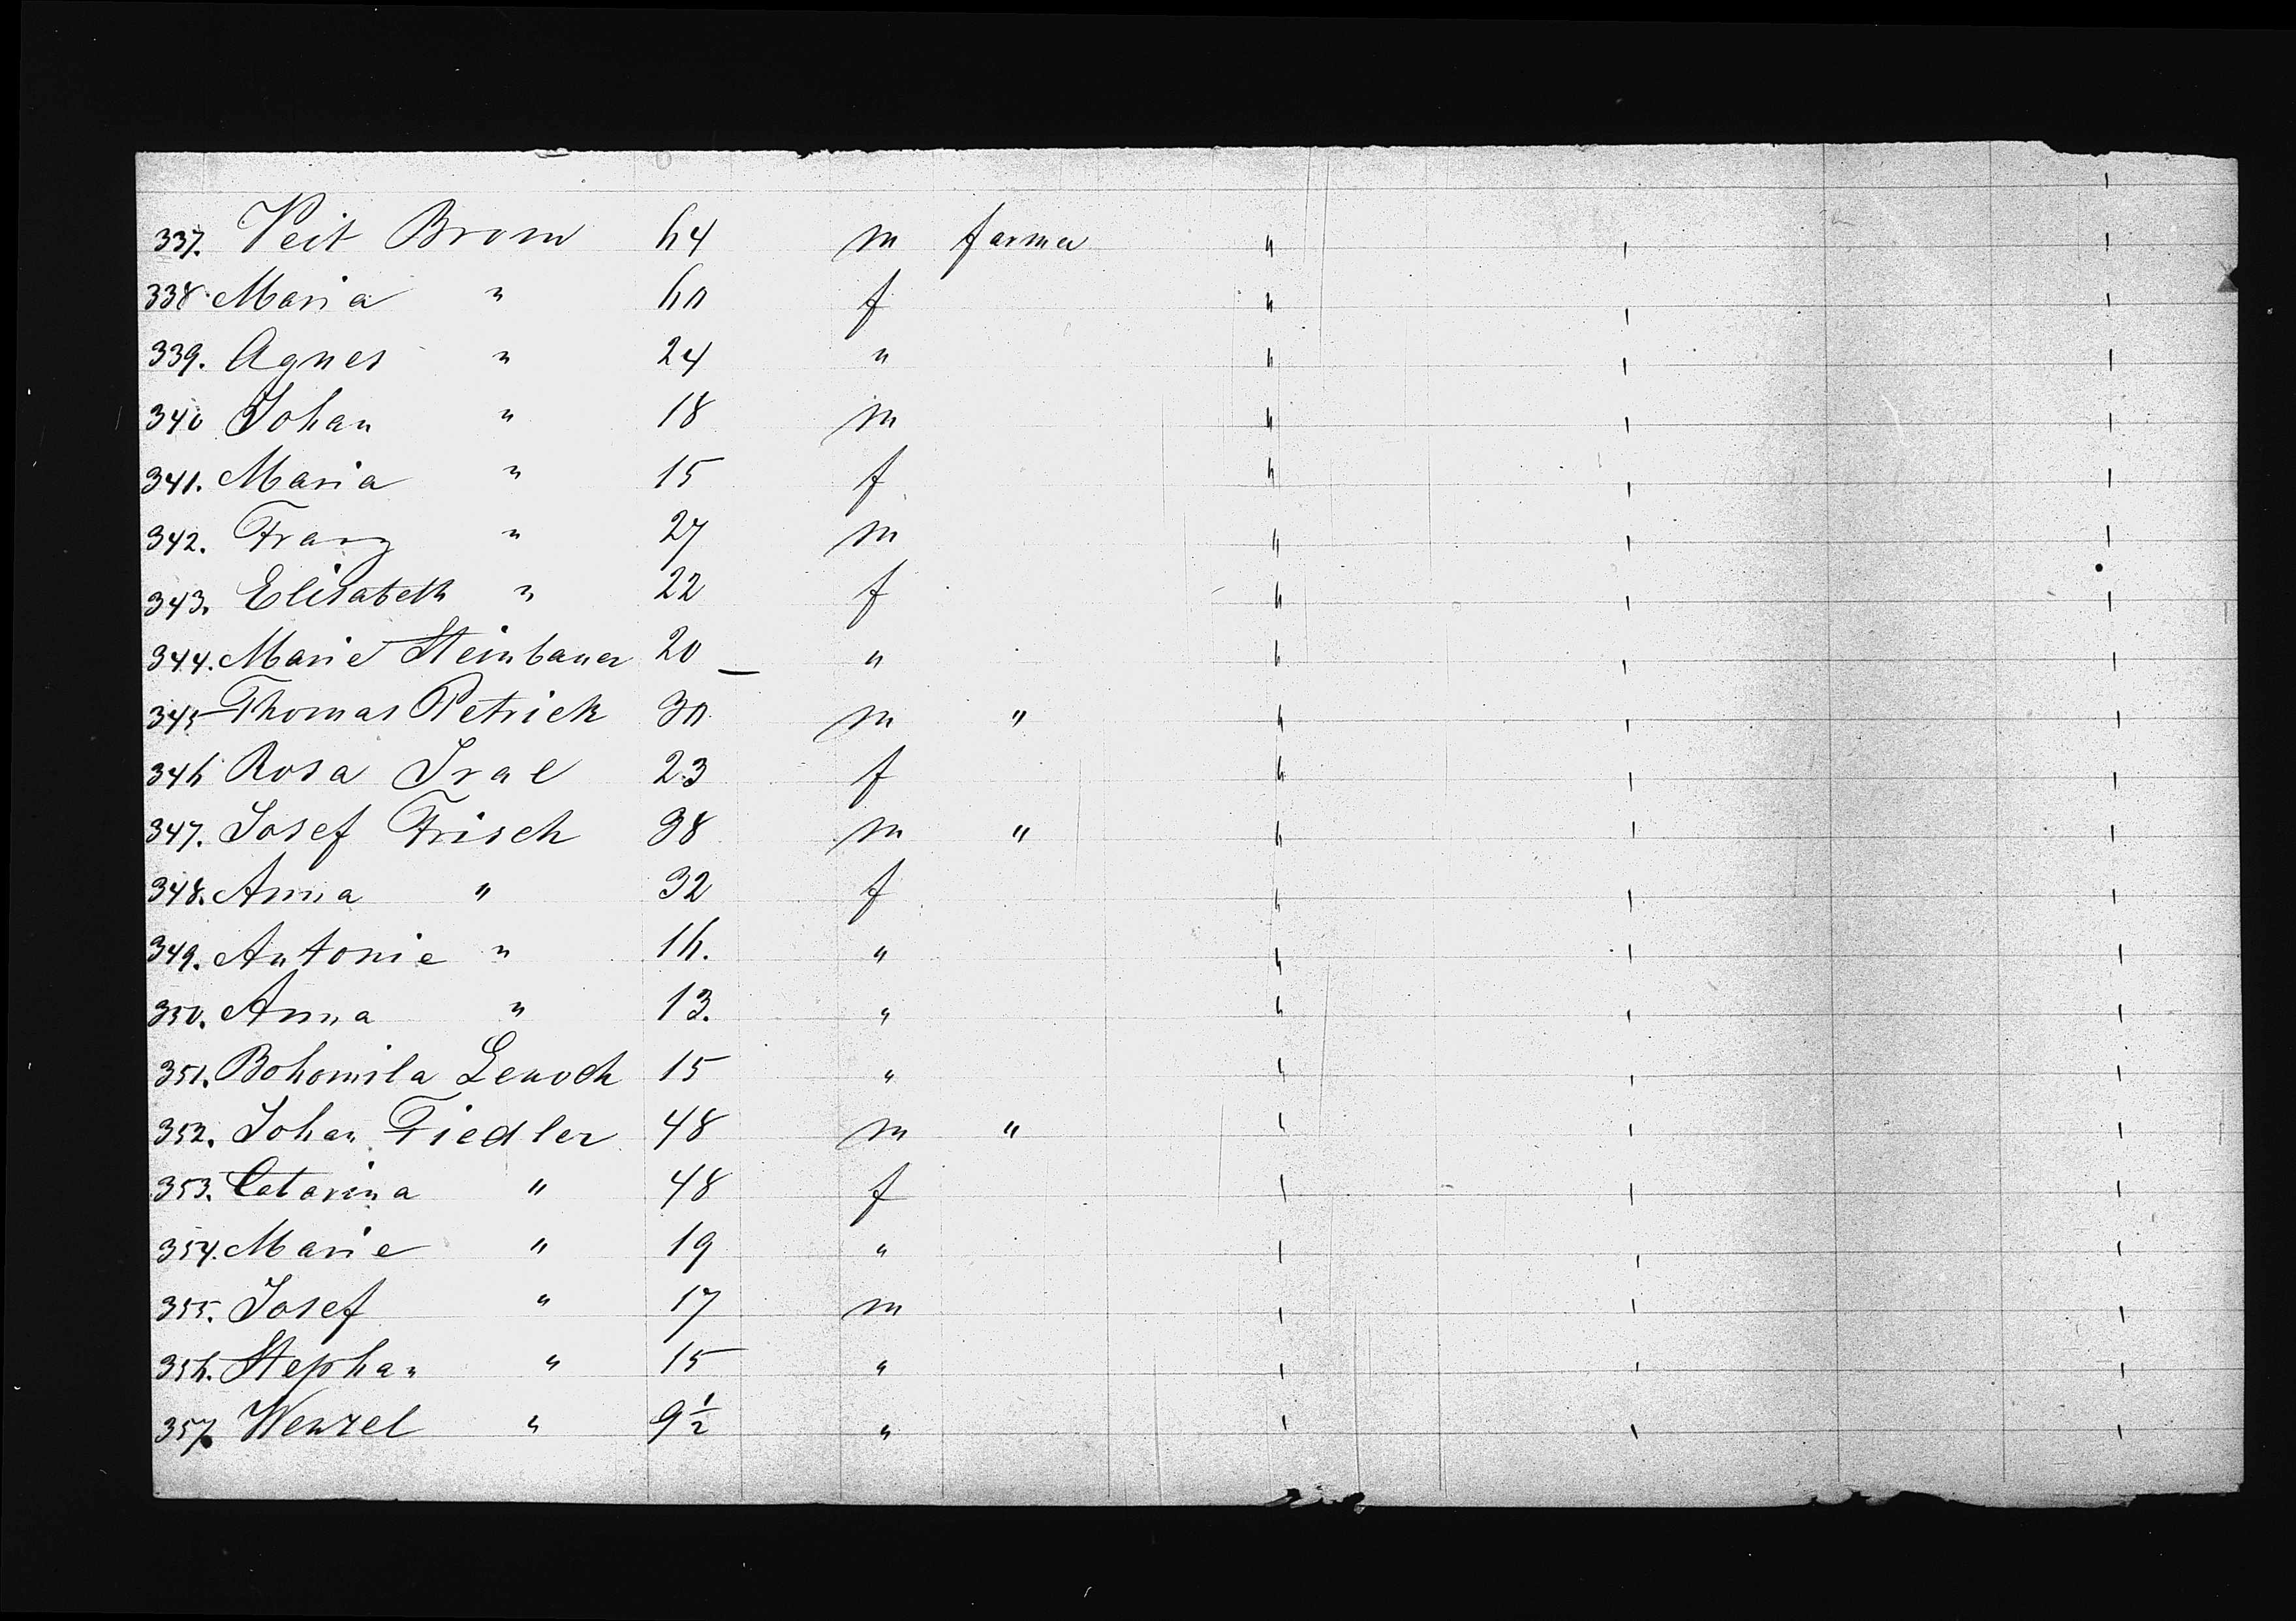 337. Veit Brom 64 m farmer "
338. Maria " 60 f "
339. Agnes " 24 " "
340 Johan " 18 m "
341. Maria " 15 f "
342. Franz " 27 m "
343. Elisabeth " 22 f "
344. Marie Steinbauer 20 — " "
345 Thomas Petrick 30 m " "
346 Rosa Iral 23 f "
347. Josef Frisch 38 m " "
348. Anna " 32 f "
349. Antonie " 16. " "
350. Anna " 13. " "
351. Bohomila Lenoch 15 " "
352. Johan Fiedler 48 m " "
353. Catarina " 48 f
354. Marie " 19 "
355. Josef " 17 m
356. Stephan " 15 "
357. Wenzel " 9 1/2 "